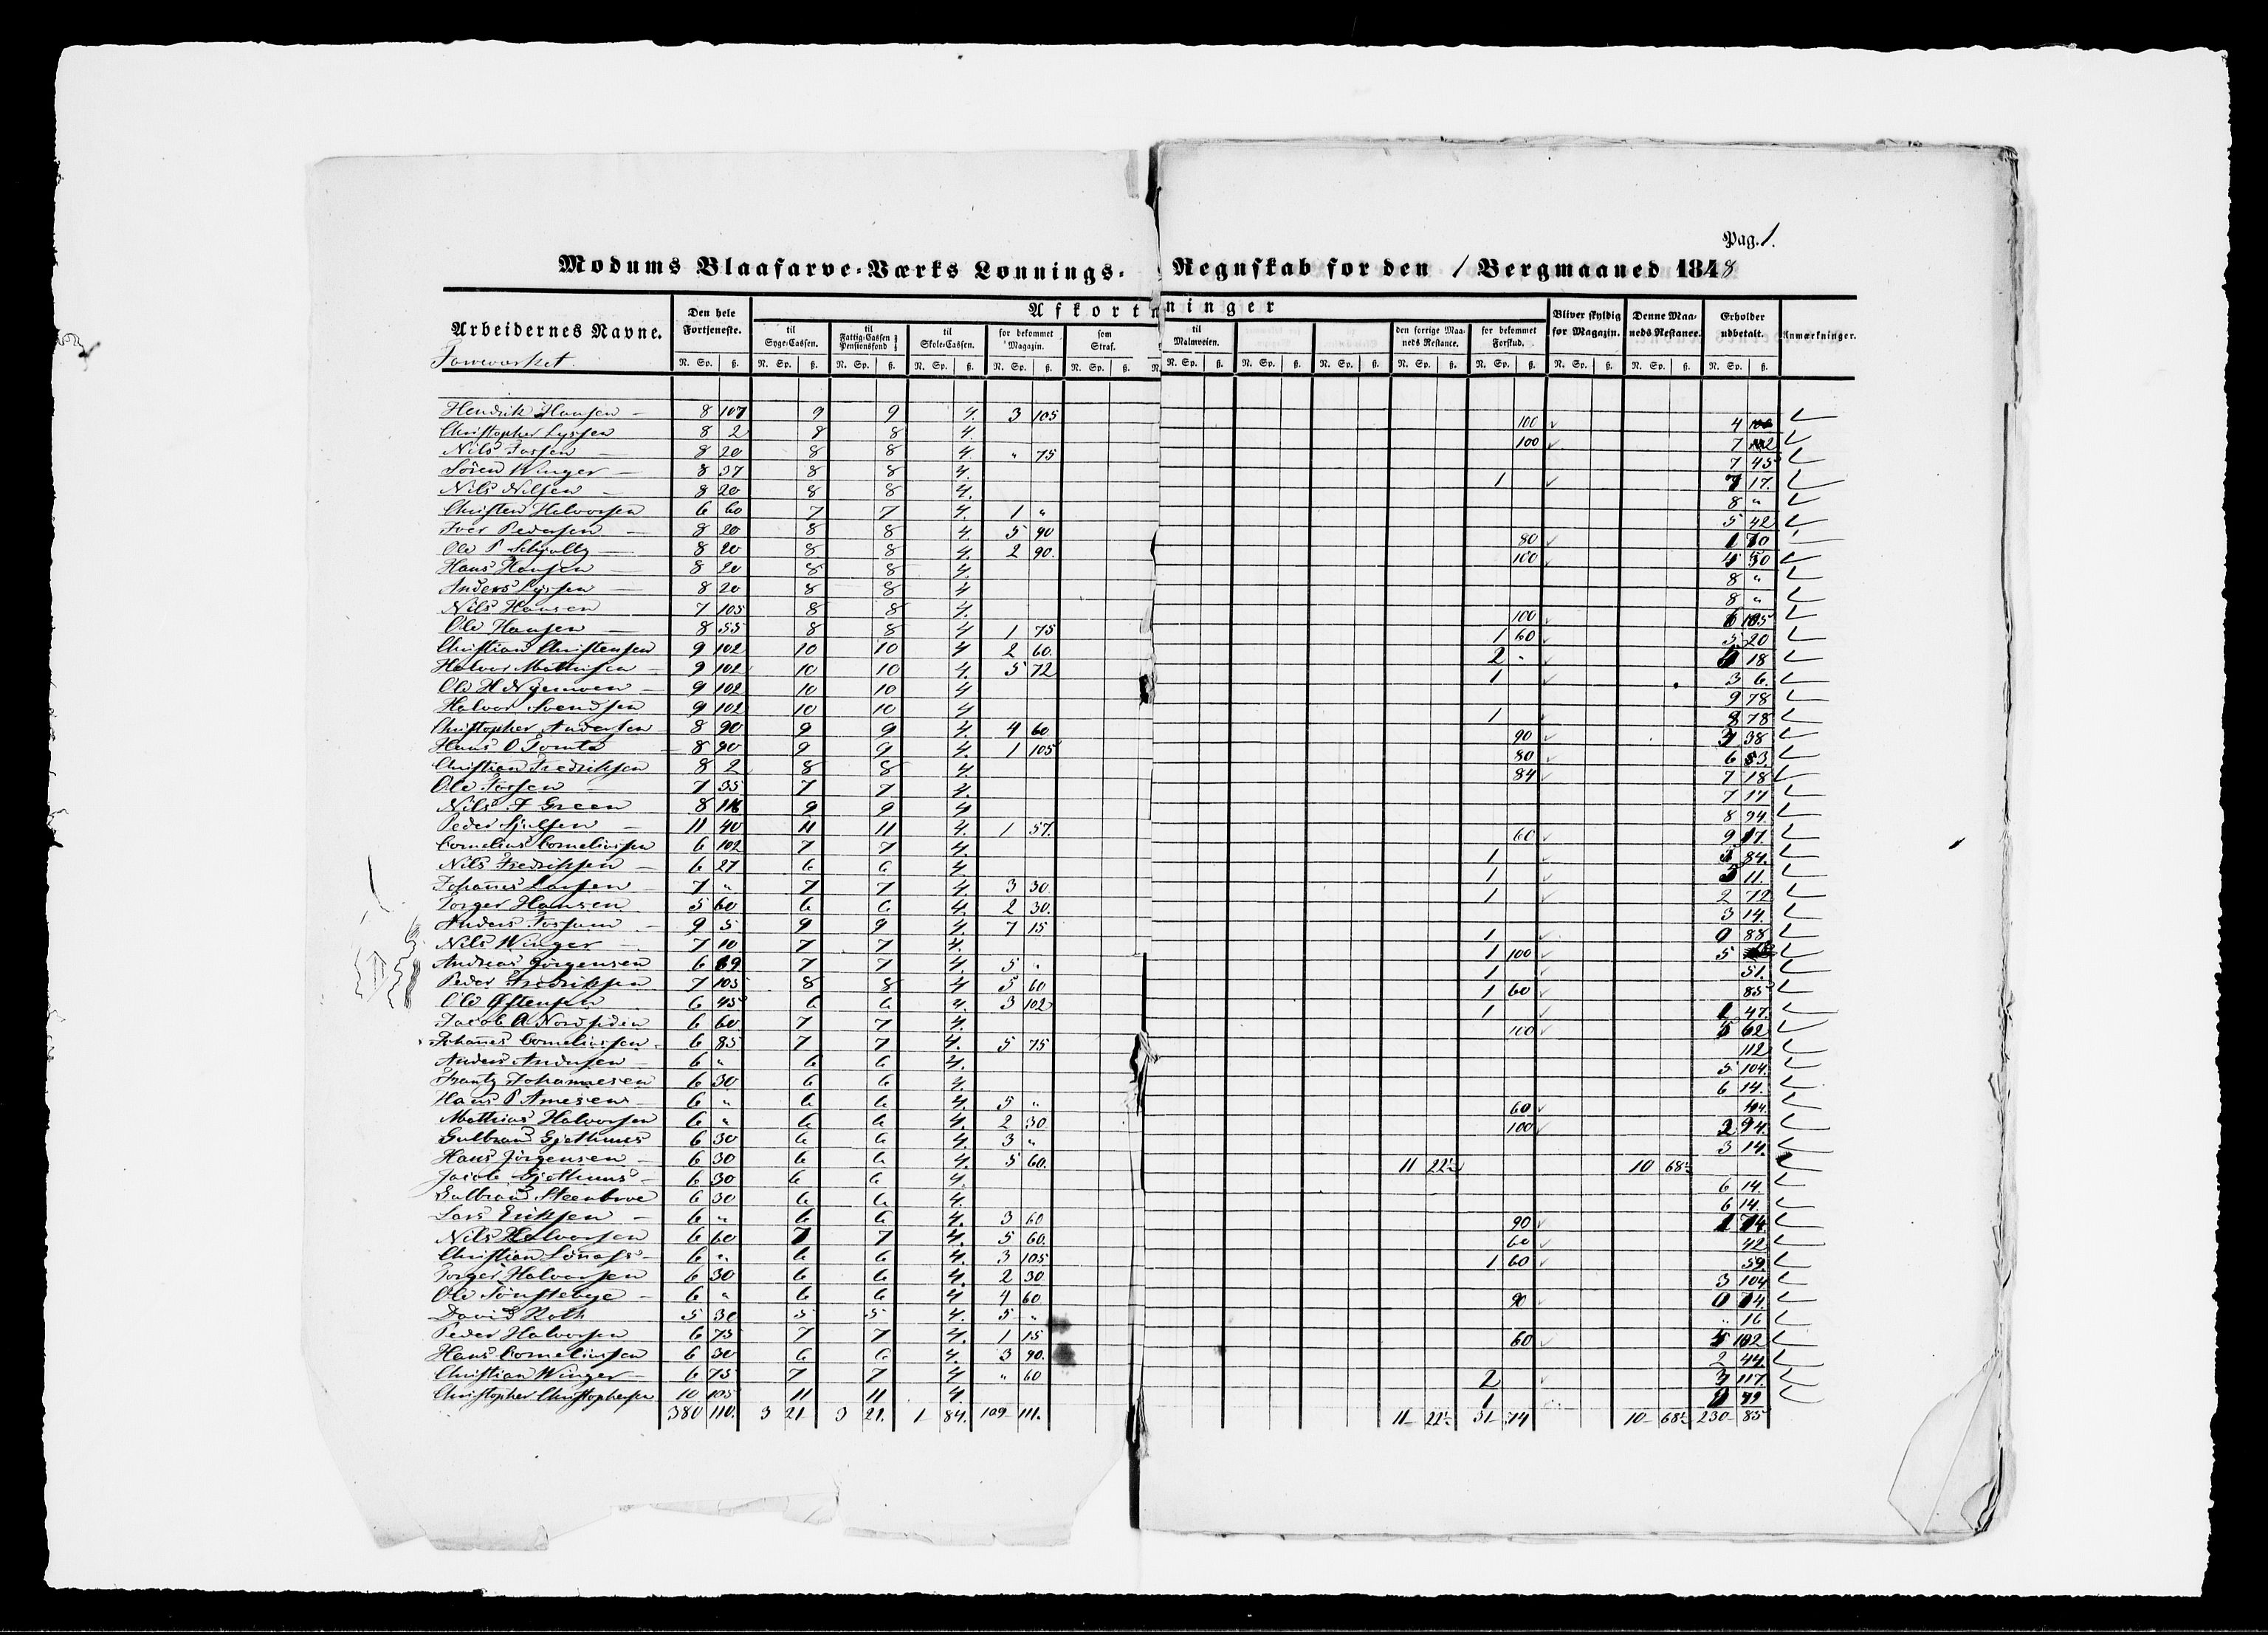 Pag. 1.
Modums Blaafarve-Værks Lønnings- Regnskab for den 1 Bergmaaned 1848
Arbeidernes Navne. Den hele Fortjeneste. Afkortninger Bliver skyldig for Magazin. Denne Maaneds Restance. Erholder udbetalt. Anmærkninger.
til Syge-Cassen. til Fattig-Cassen Pensionsfond til Skole-Cassen. for bekommet Magazin. som Straf. til Malmveien. den forrige Maaneds Restance. for bekommet Forskud.
N. Sp. ß. N. Sp. ß. N. Sp. ß. N. Sp. ß. N. Sp. ß. N. Sp. ß. N. Sp. ß. N. Sp. ß. N. Sp. ß. N. Sp. ß. N. Sp. ß. N. Sp. ß. N. Sp. ß. N. Sp. ß.
Hendrik Hansen 8 107 9 9 4. 3 105 100 4
Christopher Lyssen 8 2 8 8 4. 100 7
Nils Fossen 8 20 8 8 4 " 75 7 45
Søren Winger 8 37 8 8 4. 1 7 17.
Nils Nilsen 8 20 8 8 4. 8 "
Christen Halvorsen 6 60 7 7 4. 1 " 5 42
Iver Pedersen 8 20 8 8 4. 5 90 80 1 10
Ole P 8 20 8 8 4. 2 90. 100 4 50
Hans Hansen 8 20 8 8 4. 8 "
Anders Lyssen 8 20 8 8 4 8 "
Nils Hansen 7 105 8 8 4. 100 6 105
Ole Hansen 8 55 8 8 4 1 75 1 60 5 20
Christian Christensen 9 102 10 10 4 2 60. 2 - 5 18
Halvor Mathisen 9 102 10 10 4. 5 72 1 3 6.
Ole H Nymoen 9 102 10 10 4 9 78
Halvor Svendsen 9 102 10 10 4 1 8 78
Christopher Andersen 8 90 9 9 4 4 60 90 3 38
Hans O Tomta 8 90 9 9 4. 1 105 80 6 53
Christian Fredriksen 8 2 8 8 4. 84 7 18
Ole Fossen 7 35 7 7 4. 7 17
Nils F Green 8 116 9 9 4 8 94.
Peder Sjulsen 11 40 11 11 4. 1 57. 60 9 17.
Cornelius Corneliussen 6 102 7 7 4. 1 5 84.
Nils Fredriksen 6 27 6 6 4 1 5 11.
Johannes Larsen 7 " 7 7 4 3 30. 1 2 72
Torger Hansen 5 60 6 6 4. 2 30. 3 14.
Anders Fossum 9 5 9 9 4. 7 15 1 0 88
Nils Winger 7 10 7 7 4. 1 100 5
Andreas Jörgensen 6 69 7 7 4. 5 " 1 51.
Peder Fredriksen 7 105 8 8 4 5 60 1 60 85
Ole Østensen 6 45 6 6 4. 3 102 1 1 47.
Jacob A Nordsiden 6 60 7 7 4. 100 5 62
Johannes Corneliussen 6 85 7 7 4. 5 75 112
Anders Andersen 6 " 6 6 4. 5 104.
Frantz Johannesen 6 30 6 6 4. 6 14.
Hans P Arnesen 6 " 6 6 4. 5 " 60 44.
Mathias Halvorsen 6 " 6 6 4. 2 30 100 2 94.
Gulbrand Gjethuus 6 30 6 6 4. 3 " 3 14.
Hans Jörgensen 6 30 6 6 4. 5 60. 11 22½ 10 68½
Jacob Gjethuus 6 30 6 6 4. 6 14.
Gulbrand Steenbroe 6 30 6 6 4. 6 14.
Lars Eriksen 6 " 6 6 4. 3 60 90 1 74.
Nils Halvorsen 6 60 7 7 4. 5 60. 60 42
Christian 6 " 6 6 4. 3 105 1 60 59.
Torger Halvorsen 6 30 6 6 4. 2 30 3 104
Ole 6 " 6 6 4 4 60 90 0 74.
David Roth 5 30 5 5 4. 5 " " 16
Peder Halvorsen 6 75 7 7 4. 1 15 60 4 102
Hans Corneliussen 6 30 6 6 4. 3 90. 2 44.
Christian Winger 6 75 7 7 4. " 60 2 3 117.
Christopher Christophersen 10 105 11 11 4. 1 9 79
380 110. 3 21 3 21. 1 84. 109 111. 11 22½ 31 74 10 68½ 230 85